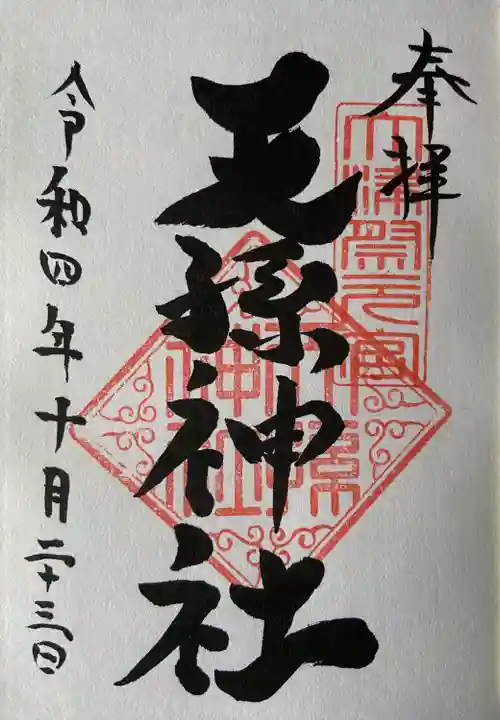 奉拝
大津祭之宮
天孫神社
天孫
神社
令和四年十月二十三日